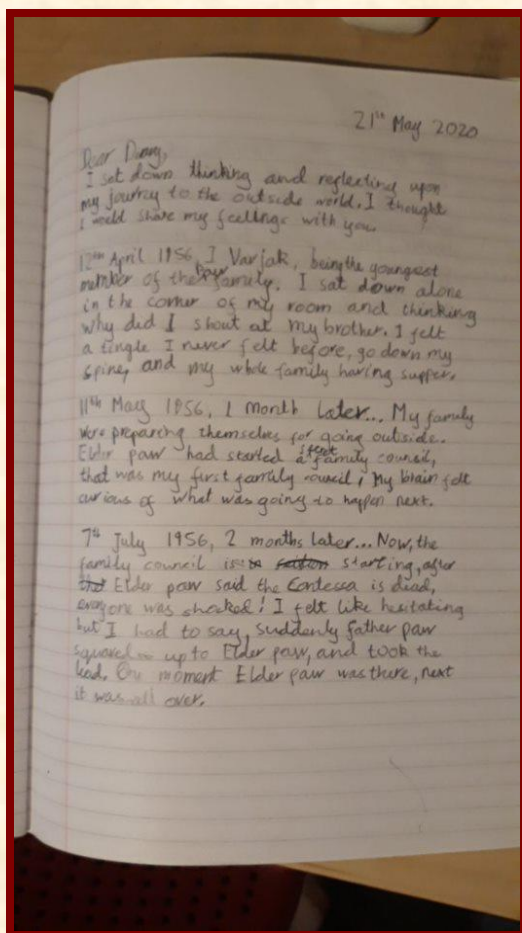 21st May 2020
Dear Diary,
I sat down thinking and reflecting upon
my journey to the outside world. I thought
I would share my feelings with you.
12th April 1956, I Varjak, being the youngest
member of the Paw family. I sat down alone
in the corner of my room and thinking
why did I shout at my brother. I felt
a tingle I never felt before, go down my
spine, and my whole family having supper.
11th May 1956, 1 month later... My family
were preparing themselves for going outside.
Elder paw had started a family council,
that was my first family council; My brain felt
curious of what was going to happen next.
7th July 1956, 2 months later... Now, the
family council is starting, after
Elder paw said the Contessa is dead,
everyone was shocked! I felt like hesitating
but I had to say, suddenly father paw
squared up to Elder paw, and took the
lead. One moment Elder paw was there, next
it was all over.